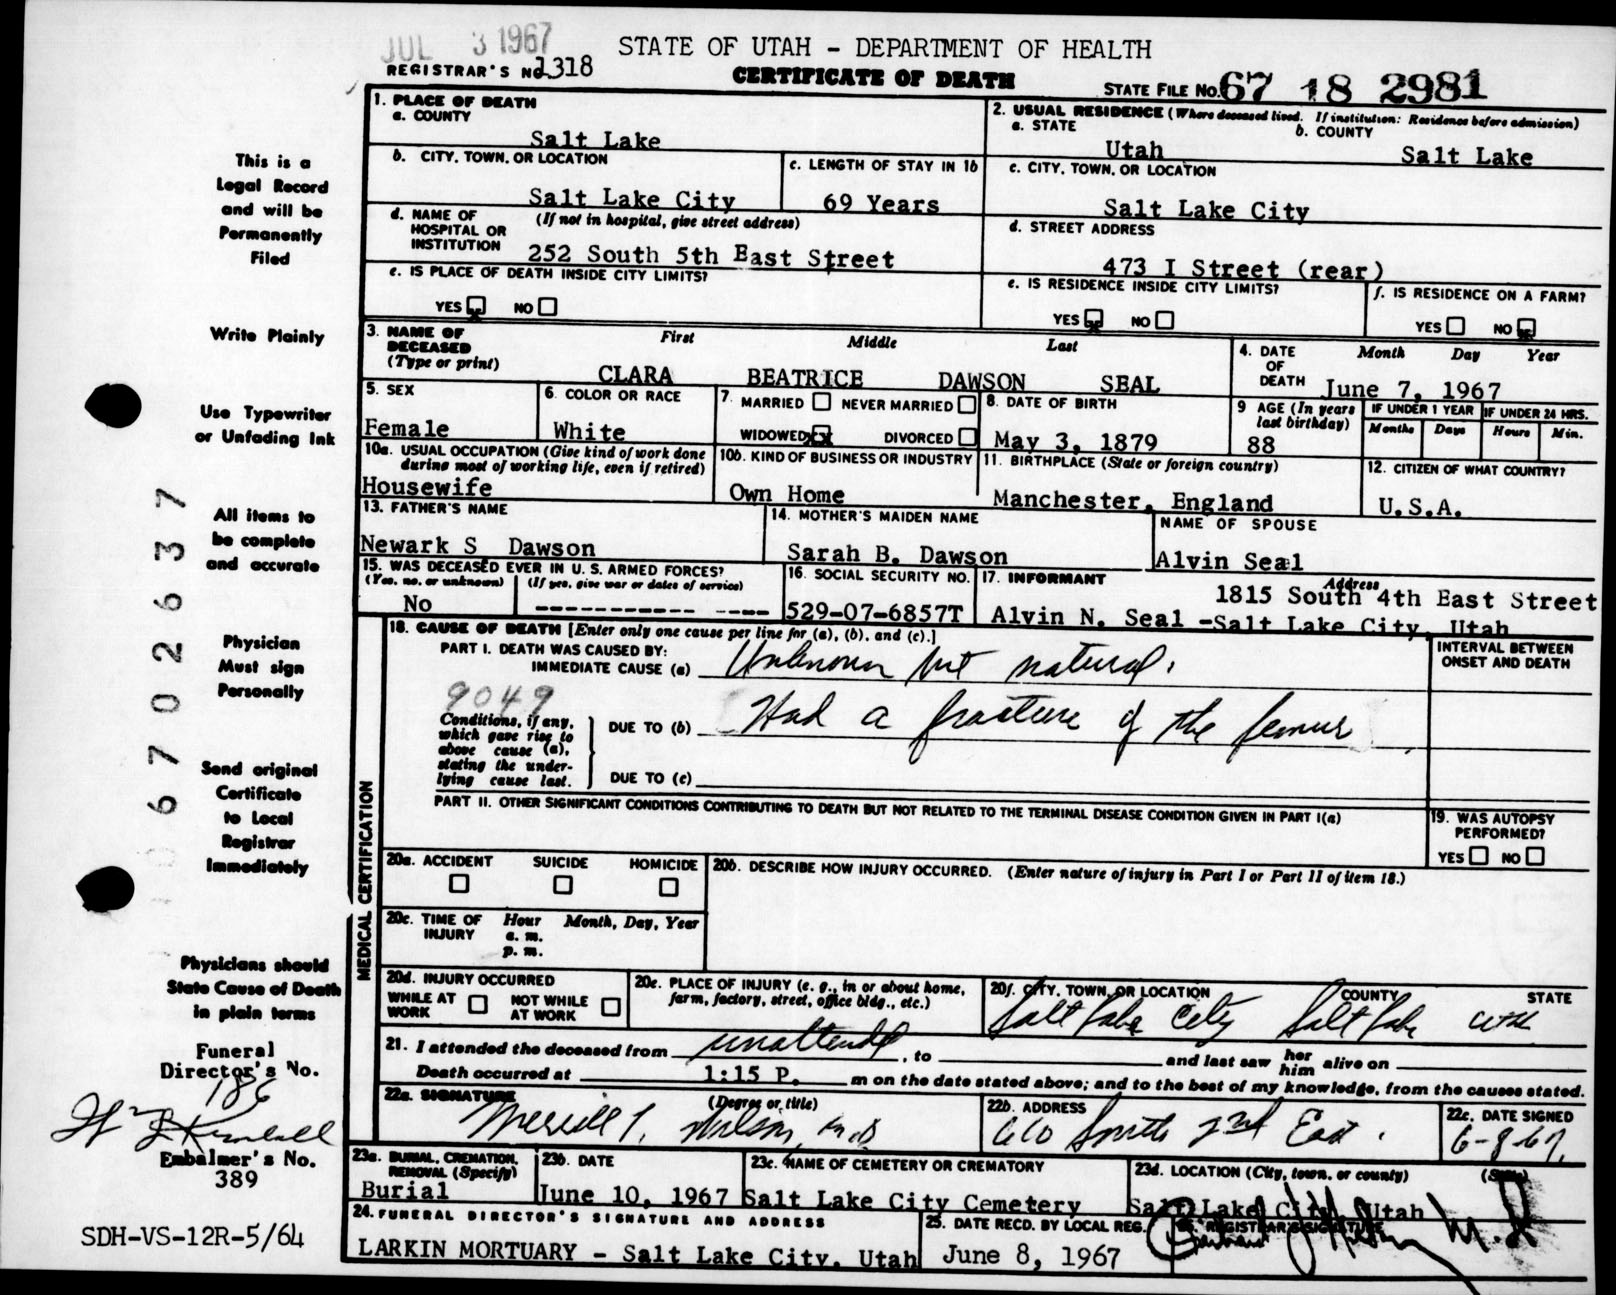 JUL 3 1967
STATE OF UTAH - DEPARTMENT OF HEALTH
REGISTRAR'S NO. 1318
CERTIFICATE OF DEATH
STATE FILE NO. 67 18 2981
1. PLACE OF DEATH
a. COUNTY
Salt Lake
2. USUAL RESIDENCE (Where deceased lived. If institution: Residence before admission)
a. STATE
Utah
b. COUNTY
Salt Lake
b. CITY, TOWN, OR LOCATION
Salt Lake City
c. LENGTH OF STAY IN 1b
69 Years
c. CITY, TOWN, OR LOCATION
Salt Lake City
d. NAME OF HOSPITAL OR INSTITUTION
(If not in hospital, give street address)
252 South 5th East Street
d. STREET ADDRESS
473 I Street (rear)
e. IS PLACE OF DEATH INSIDE CITY LIMITS?
YES NO
e. IS RESIDENCE INSIDE CITY LIMITS?
YES NO
f. IS RESIDENCE ON A FARM?
YES NO
3. NAME OF DECEASED
(Type or print)
First Middle Last
CLARA BEATRICE DAWSON SEAL
4. DATE OF DEATH
Month Day Year
June 7, 1967
5. SEX
Female
6. COLOR OR RACE
White
7. MARRIED NEVER MARRIED
WIDOWED XX DIVORCED
8. DATE OF BIRTH
May 3, 1879
9 AGE (In years last birthday)
88
IF UNDER 1 YEAR
Months Days
IF UNDER 24 HRS.
Hours Min.
10a. USUAL OCCUPATION (Give kind of work done
during most of working life, even if retired)
Housewife
10b. KIND OF BUSINESS OR INDUSTRY
Own Home
11. BIRTHPLACE (State or foreign country)
Manchester, England
12. CITIZEN OF WHAT COUNTRY?
U.S.A.
13. FATHER'S NAME
Newark S Dawson
14. MOTHER'S MAIDEN NAME
Sarah B. Dawson
NAME OF SPOUSE
Alvin Seal
15. WAS DECEASED EVER IN U.S. ARMED FORCES?
(Yes, no, or unknown) (If yes, give war or dates of service)
No
16. SOCIAL SECURITY NO.
529-07-6857T
17. INFORMANT
Address
1815 South 4th East Street
Alvin N. Seal -Salt Lake City, Utah
MEDICAL CERTIFICATION
18. CAUSE OF DEATH [Enter only one cause per line for (a), (b), and (c).]
PART I. DEATH WAS CAUSED BY:
IMMEDIATE CAUSE (a) Unknown but natural.
INTERVAL BETWEEN
ONSET AND DEATH
9049
Conditions, if any,
which gave rise to
above cause (a),
stating the under-
lying cause last.
DUE TO (b) Had a fracture of the femur
DUE TO (c)
PART II. OTHER SIGNIFICANT CONDITIONS CONTRIBUTING TO DEATH BUT NOT RELATED TO THE TERMINAL DISEASE CONDITION GIVEN IN PART I(a)
19. WAS AUTOPSY
PERFORMED?
YES NO
20a. ACCIDENT SUICIDE HOMICIDE
20b. DESCRIBE HOW INJURY OCCURRED. (Enter nature of injury in Part I or Part II of item 18.)
20c. TIME OF INJURY
Hour Month, Day, Year
a. m.
p. m.
20d. INJURY OCCURRED
WHILE AT WORK NOT WHILE AT WORK
20e. PLACE OF INJURY (e. g., in or about home,
farm, factory, street, office bldg., etc.)
20f. CITY, TOWN, OR LOCATION COUNTY STATE
Salt Lake City Salt Lake Utah
21. I attended the deceased from unattended, to and last saw her him alive on
Death occurred at 1:15 P. m on the date stated above; and to the best of my knowledge, from the causes stated.
22a. SIGNATURE (Degree or title)
Merrill T. Wilson, M.D
22b. ADDRESS
610 South 2nd East.
22c. DATE SIGNED
6-8-67
23a. BURIAL, CREMATION,
REMOVAL (Specify)
Burial
23b. DATE
June 10, 1967
23c. NAME OF CEMETERY OR CREMATORY
Salt Lake City Cemetery
23d. LOCATION (City, town, or county) (State)
Salt Lake City, Utah
24. FUNERAL DIRECTOR'S SIGNATURE AND ADDRESS
LARKIN MORTUARY - Salt Lake City, Utah
25. DATE RECD. BY LOCAL REG.
June 8, 1967
26. REGISTRAR'S SIGNATURE
M.D
This is a
Legal Record
and will be
Permanently
Filed
Write Plainly
Use Typewriter
or Unfading Ink
All items to
be complete
and accurate
Physician
Must sign
Personally
Send original
Certificate
to Local
Registrar
Immediately
Physicians should
State Cause of Death
in plain terms
Funeral
Director's No.
186
Embalmer's No.
389
SDH-VS-12R-5/64
67 02637